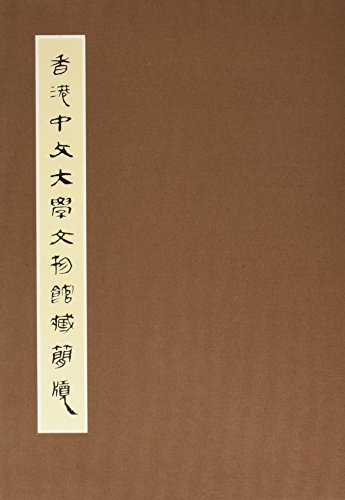 香港中文大學文物館藏簡牘